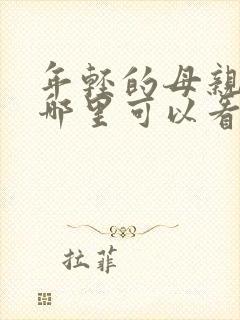 年轻的母亲
哪里可以看
拉菲